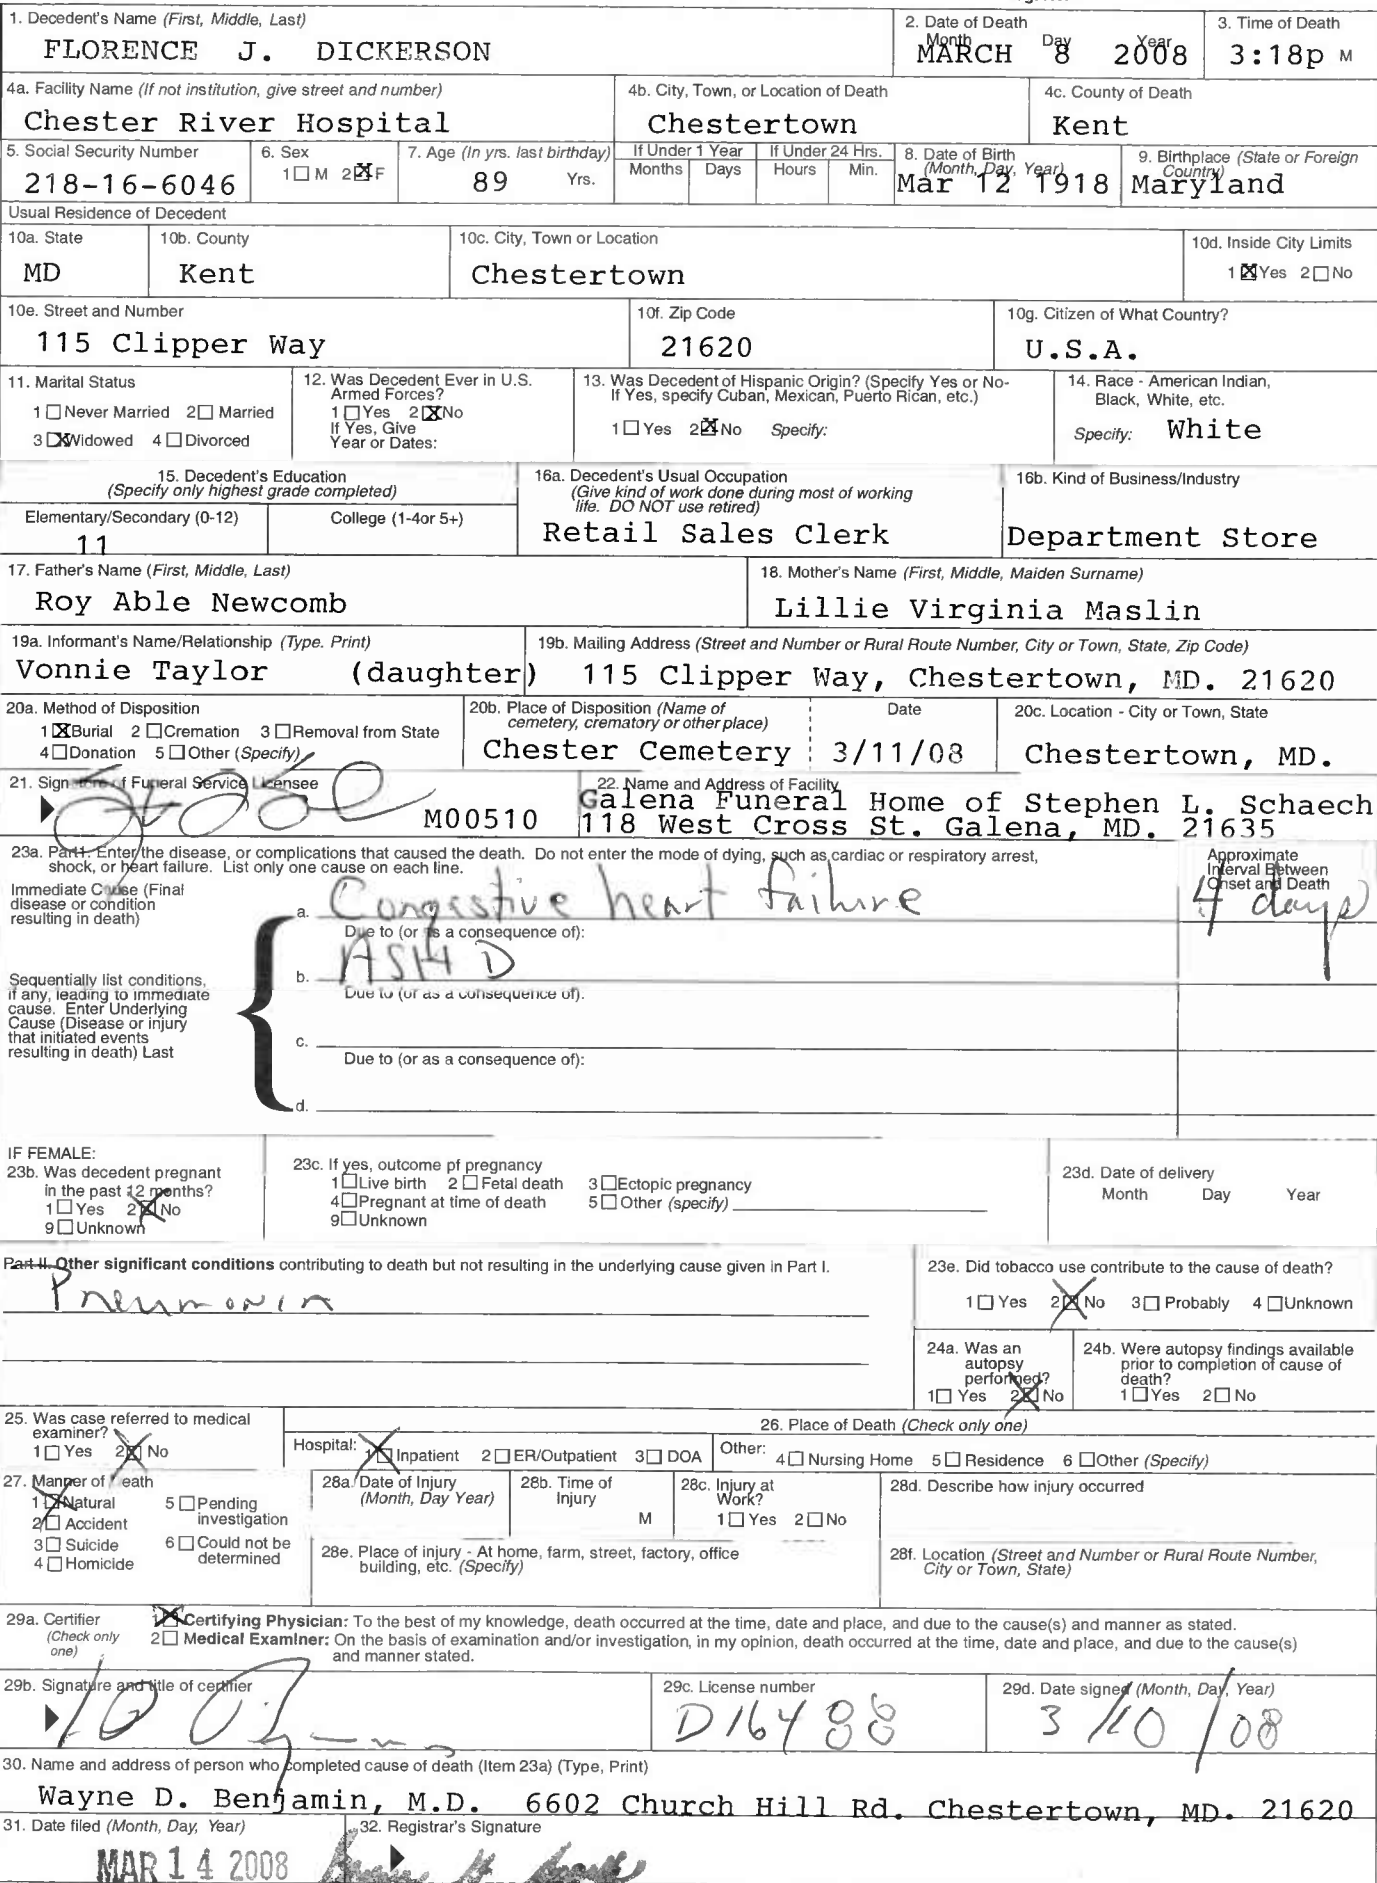 1. Decedent's Name (First, Middle, Last)
FLORENCE J. DICKERSON
2. Date of Death
Month Day Year
MARCH 8 2008
3. Time of Death
3:18p M
4a. Facility Name (If not institution, give street and number)
Chester River Hospital
4b. City, Town, or Location of Death
Chestertown
4c. County of Death
Kent
5. Social Security Number
218-16-6046
6. Sex
1☐M 2☒F
7. Age (In yrs. last birthday)
89 Yrs.
If Under 1 Year
Months Days
If Under 24 Hrs.
Hours Min.
8. Date of Birth
(Month, Day, Year)
Mar 12 1918
9. Birthplace (State or Foreign
Country)
Maryland
Usual Residence of Decedent
10a. State
MD
10b. County
Kent
10c. City, Town or Location
Chestertown
10d. Inside City Limits
1☒Yes 2☐No
10e. Street and Number
115 Clipper Way
10f. Zip Code
21620
10g. Citizen of What Country?
U.S.A.
11. Marital Status
1☐Never Married 2☐Married
3☒Widowed 4☐Divorced
12. Was Decedent Ever in U.S.
Armed Forces?
1☐Yes 2☒No
If Yes, Give
Year or Dates:
13. Was Decedent of Hispanic Origin? (Specify Yes or No-
If Yes, specify Cuban, Mexican, Puerto Rican, etc.)
1☐Yes 2☒No Specify:
14. Race - American Indian,
Black, White, etc.
Specify: White
15. Decedent's Education
(Specify only highest grade completed)
Elementary/Secondary (0-12) College (1-4or 5+)
11
16a. Decedent's Usual Occupation
(Give kind of work done during most of working
life. DO NOT use retired)
Retail Sales Clerk
16b. Kind of Business/Industry
Department Store
17. Father's Name (First, Middle, Last)
Roy Able Newcomb
18. Mother's Name (First, Middle, Maiden Surname)
Lillie Virginia Maslin
19a. Informant's Name/Relationship (Type. Print)
Vonnie Taylor (daughter)
19b. Mailing Address (Street and Number or Rural Route Number, City or Town, State, Zip Code)
115 Clipper Way, Chestertown, MD. 21620
20a. Method of Disposition
1☒Burial 2☐Cremation 3☐Removal from State
4☐Donation 5☐Other (Specify)
20b. Place of Disposition (Name of
cemetery, crematory or other place)
Chester Cemetery
Date
3/11/08
20c. Location - City or Town, State
Chestertown, MD.
21. Signature of Funeral Service Licensee
M00510
22. Name and Address of Facility
Galena Funeral Home of Stephen L. Schaech
118 West Cross St. Galena, MD. 21635
23a. Part I. Enter the disease, or complications that caused the death. Do not enter the mode of dying, such as cardiac or respiratory arrest,
shock, or heart failure. List only one cause on each line.
Approximate
Interval Between
Onset and Death
Immediate Cause (Final
disease or condition
resulting in death)
a. Congestive heart failure 4 days
Due to (or as a consequence of):
b. ASHD
Due to (or as a consequence of).
Sequentially list conditions,
if any, leading to immediate
cause. Enter Underlying
Cause (Disease or injury
that initiated events
resulting in death) Last
c.
Due to (or as a consequence of):
d.
IF FEMALE:
23b. Was decedent pregnant
in the past 12 months?
1☐Yes 2☒No
9☐Unknown
23c. If yes, outcome pf pregnancy
1☐Live birth 2☐Fetal death 3☐Ectopic pregnancy
4☐Pregnant at time of death 5☐Other (specify)
9☐Unknown
23d. Date of delivery
Month Day Year
Part II. Other significant conditions contributing to death but not resulting in the underlying cause given in Part I.
Pneumonia
23e. Did tobacco use contribute to the cause of death?
1☐Yes 2☒No 3☐Probably 4☐Unknown
24a. Was an
autopsy
performed?
1☐Yes 2☒No
24b. Were autopsy findings available
prior to completion of cause of
death?
1☐Yes 2☐No
25. Was case referred to medical
examiner?
1☐Yes 2☒No
26. Place of Death (Check only one)
Hospital: 1☒Inpatient 2☐ER/Outpatient 3☐DOA
Other: 4☐Nursing Home 5☐Residence 6☐Other (Specify)
27. Manner of Death
1☒Natural 5☐Pending
investigation
2☐Accident
3☐Suicide 6☐Could not be
determined
4☐Homicide
28a. Date of Injury
(Month, Day Year)
28b. Time of
Injury
M
28c. Injury at
Work?
1☐Yes 2☐No
28d. Describe how injury occurred
28e. Place of injury - At home, farm, street, factory, office
building, etc. (Specify)
28f. Location (Street and Number or Rural Route Number,
City or Town, State)
29a. Certifier
(Check only
one)
1☒Certifying Physician: To the best of my knowledge, death occurred at the time, date and place, and due to the cause(s) and manner as stated.
2☐Medical Examiner: On the basis of examination and/or investigation, in my opinion, death occurred at the time, date and place, and due to the cause(s)
and manner stated.
29b. Signature and title of certifier
29c. License number
D16488
29d. Date signed (Month, Day, Year)
3/10/08
30. Name and address of person who completed cause of death (Item 23a) (Type, Print)
Wayne D. Benjamin, M.D. 6602 Church Hill Rd. Chestertown, MD. 21620
31. Date filed (Month, Day, Year)
MAR 14 2008
32. Registrar's Signature